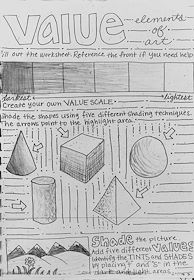 value
elements
of
art
Fill out the worksheet. Reference the front if you need help
darkest
lightest
Create your own VALUE SCALE.
Shade the shapes using five different shading techniques.
The arrows point to the highlight area.
Shade the picture
Add five different values
Identify the TINTS and SHADES
by placing T and "S" in the
light and dark areas.